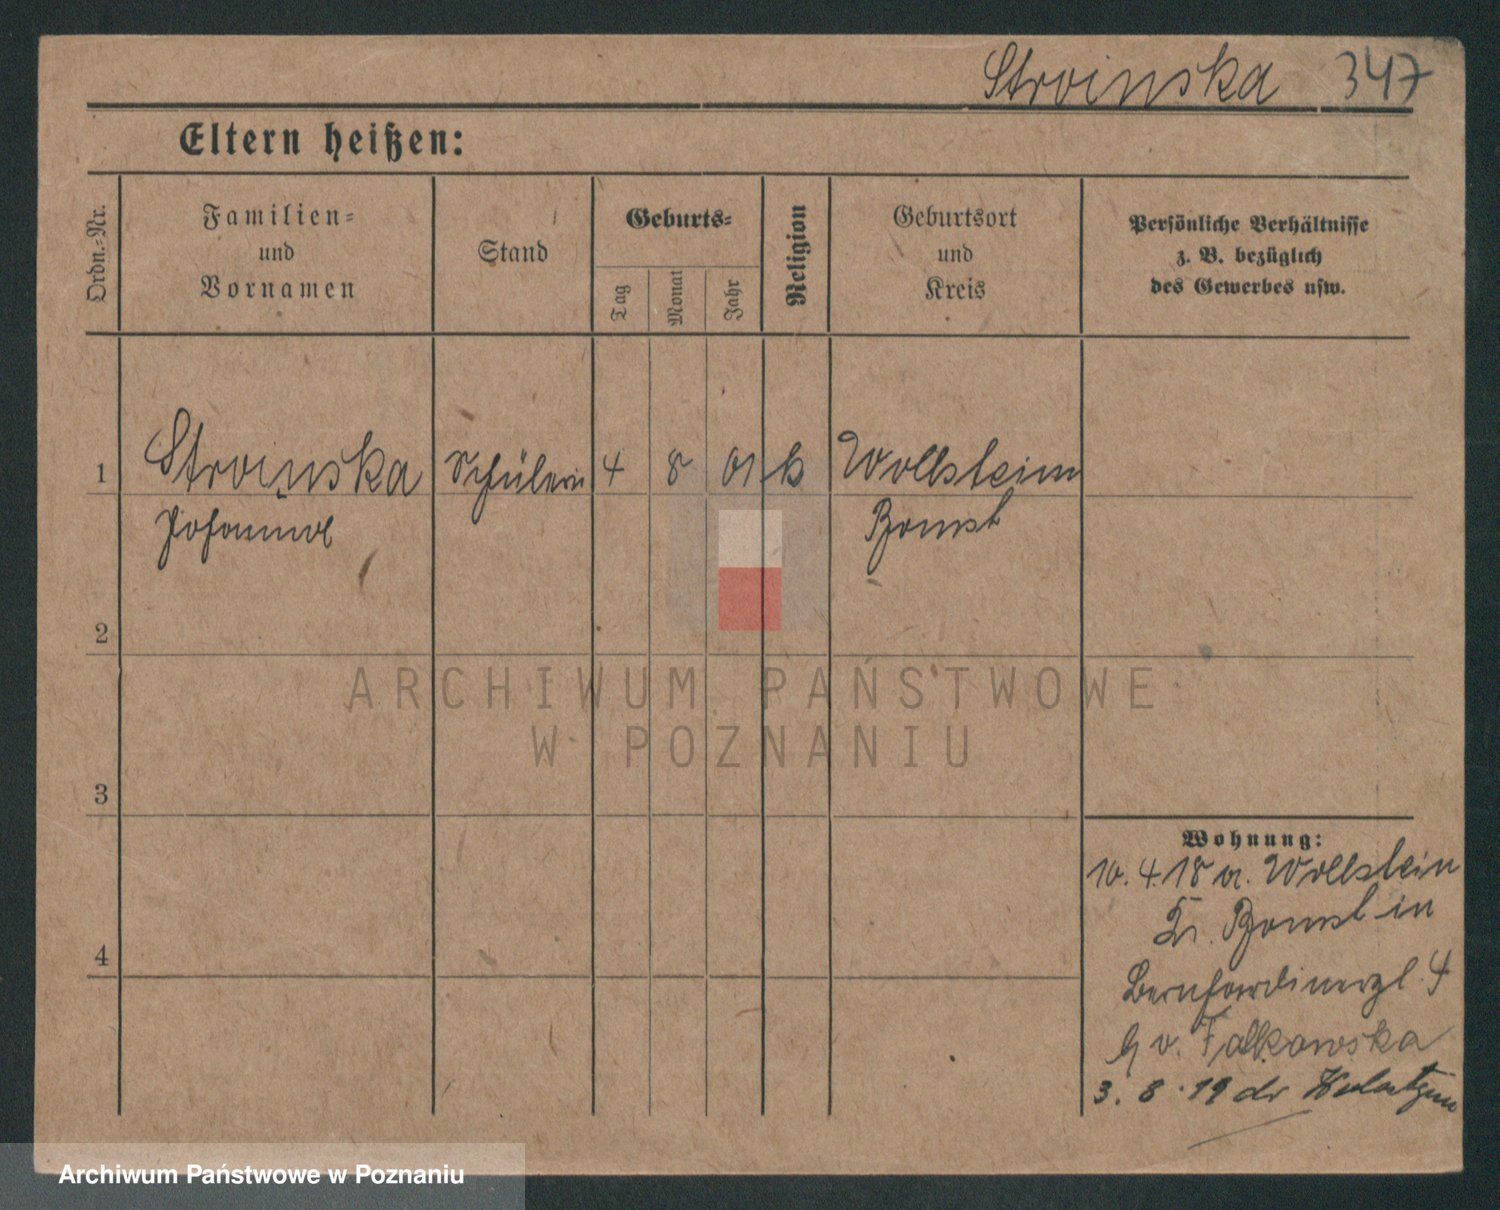 Stroinska 347
Eltern heißen:
Ordn.=Nr.
Familien=
und
Vornamen
Stand
Geburts=
Tag
Monat
Jahr
Religion
Geburtsort
und
Kreis
Persönliche Verhältnisse
z. B. bezüglich
des Gewerbes usw.
1 Stroinska Schülerin 4 8 01 k Wollstein
Johanna Bomst
2
3
4
Wohnung:
10. 4. 18 a. Wollstein
Kr. Bomst in
Bernhardinerpl. 4
b v. Falkowska
3. 8. 19
ARCHIWUM PAŃSTWOWE
W POZNANIU
Archiwum Państwowe w Poznaniu